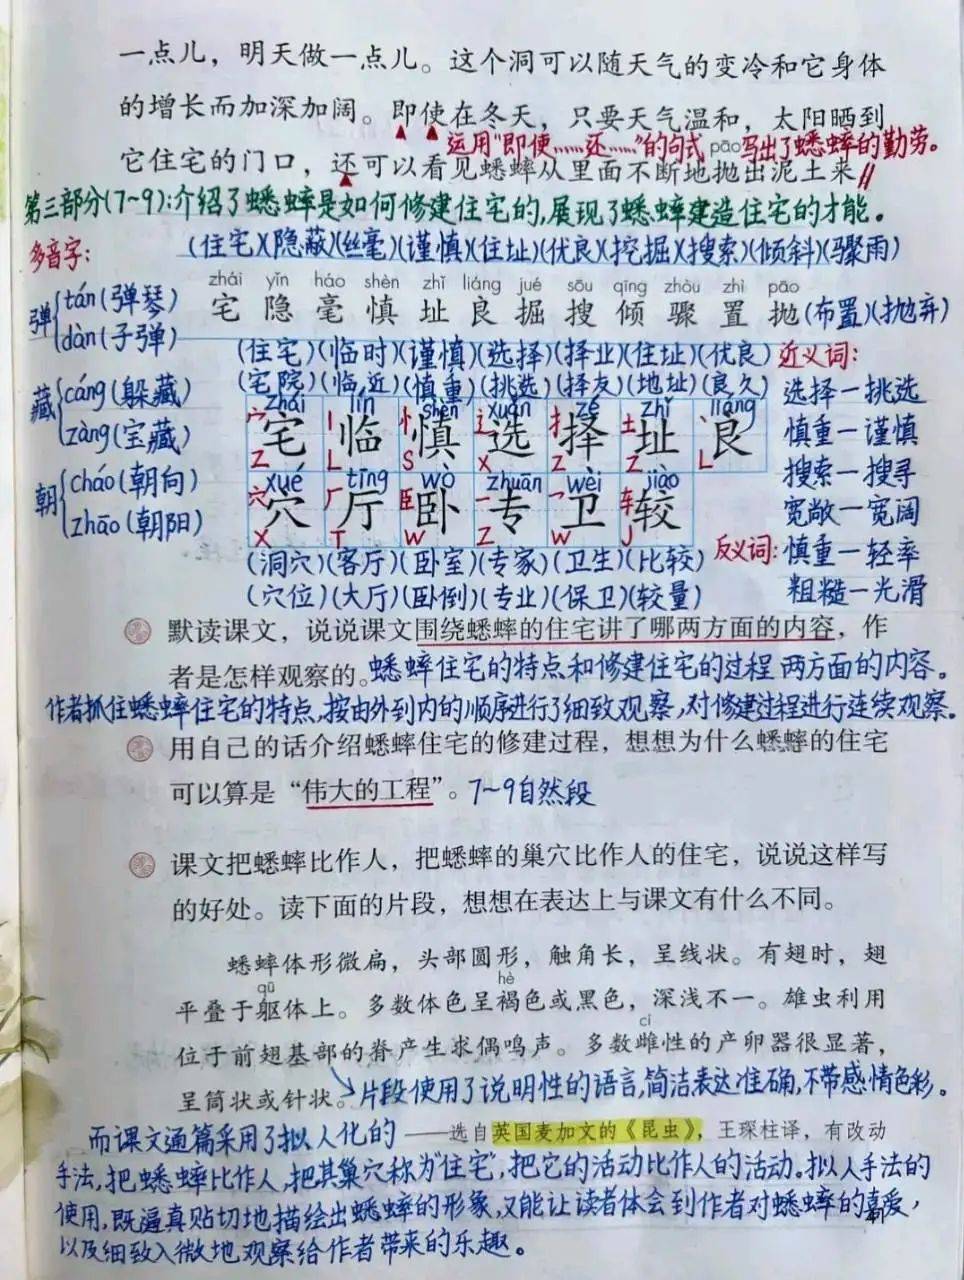 一点儿，明天做一点儿。这个洞可以随天气的变冷和它身体
的增长而加深加阔。即使在冬天，只要天气温和，太阳晒到
运用“即使……还……”的句式 pāo 写出了蟋蟀的勤劳。
它住宅的门口，还可以看见蟋蟀从里面不断地抛出泥土来
第三部分(7~9):介绍了蟋蟀是如何修建住宅的,展现了蟋蟀建造住宅的才能。
多音字:
(住宅)(隐蔽)(丝毫)(谨慎)(住址)(优良)(挖掘)(搜索)(倾斜)(骤雨)
zhái yǐn háo shèn zhǐ liáng jué sōu qīng zhòu zhì pāo
宅 隐 毫 慎 址 良 掘 搜 倾 骤 置 抛 (布置)(抛弃)
弹 tán(弹琴)
dàn(子弹)
藏 cáng(躲藏)
zàng(宝藏)
朝 cháo(朝向)
zhāo(朝阳)
(住宅)(临时)(谨慎)(选择)(择业)(住址)(优良)
(宅院)(临近)(慎重)(挑选)(择友)(地址)(良久)
zhái lín shèn xuǎn zé zhǐ liáng
宀 丨 忄 辶 扌 土 丶
宅 临 慎 选 择 址 良
Z L S X Z Z L
xué tīng wò zhuān wèi jiào
穴 厂 臣 一 一 车
穴 厅 卧 专 卫 较
X T W Z W J
(洞穴)(客厅)(卧室)(专家)(卫生)(比较)
(穴位)(大厅)(卧倒)(专业)(保卫)(较量)
近义词:
选择—挑选
慎重—谨慎
搜索—搜寻
宽敞—宽阔
反义词: 慎重—轻率
粗糙—光滑
默读课文，说说课文围绕蟋蟀的住宅讲了哪两方面的内容，作
者是怎样观察的。蟋蟀住宅的特点和修建住宅的过程两方面的内容。
作者抓住蟋蟀住宅的特点,按由外到内的顺序进行了细致观察,对修建过程进行连续观察。
用自己的话介绍蟋蟀住宅的修建过程，想想为什么蟋蟀的住宅
可以算是“伟大的工程”。7~9自然段
课文把蟋蟀比作人，把蟋蟀的巢穴比作人的住宅，说说这样写
的好处。读下面的片段，想想在表达上与课文有什么不同。
蟋蟀体形微扁，头部圆形，触角长，呈线状。有翅时，翅
qū hè
平叠于躯体上。多数体色呈褐色或黑色，深浅不一。雄虫利用
cí
位于前翅基部的脊产生求偶鸣声。多数雌性的产卵器很显著，
呈筒状或针状。片段使用了说明性的语言,简洁表达准确,不带感情色彩。
——选自英国麦加文的《昆虫》，王琛柱译，有改动
而课文通篇采用了拟人化的
手法,把蟋蟀比作人,把其巢穴称为“住宅”,把它的活动比作人的活动。拟人手法的
使用,既逼真贴切地描绘出蟋蟀的形象,又能让读者体会到作者对蟋蟀的喜爱,
以及细致入微地观察给作者带来的乐趣。